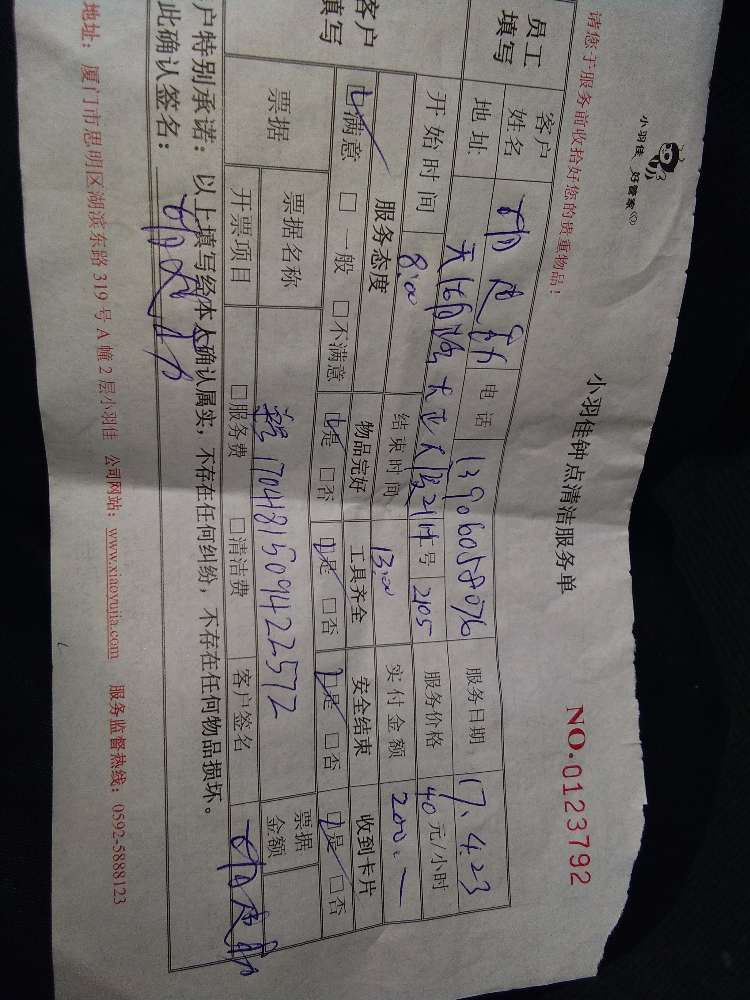 小羽佳 好管家
小羽佳钟点清洁服务单
请您于服务前收拾好您的贵重物品！
NO.0123792
员工填写
客户姓名 电话 13906058076 服务日期 17.4.23
地址 号 2105 服务价格 40元/小时
开始时间 8:00 结束时间 13:00 实付金额 200.一
客户填写
服务态度 物品完好 工具齐全 安全结束 收到卡片
☑满意 □一般 □不满意 ☑是 □否 ☑是 □否 ☑是 □否 ☑是 □否
票据 票据名称 170481509422572 票据金额
开票项目 □服务费 □清洁费 客户签名
户特别承诺：以上填写经本人确认属实，不存在任何纠纷，不存在任何物品损坏。
此确认签名：
地址：厦门市思明区湖滨东路319号A幢2层小羽佳 公司网站：www.xiaoyujia.com 服务监督热线：0592-5888123